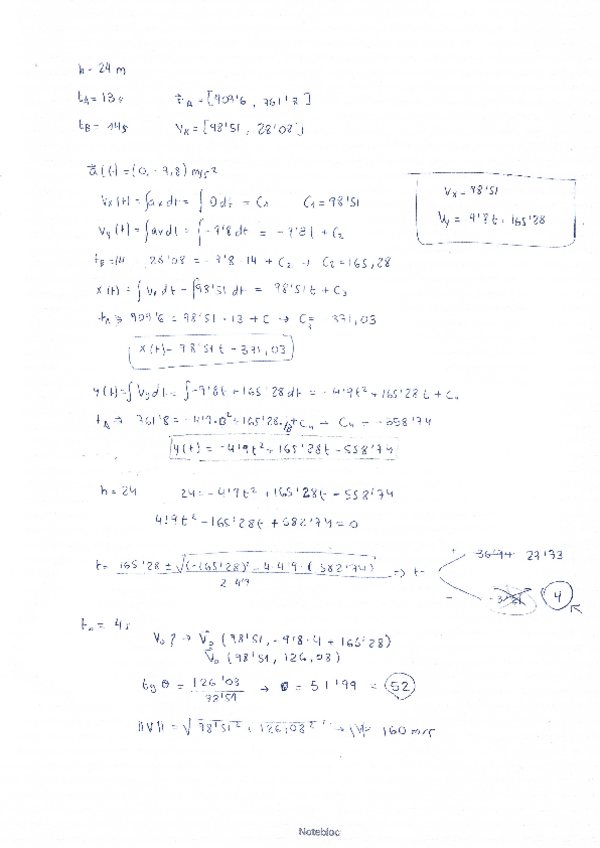 h = 24 m
tA = 13s r⃗A = [909'6, 761'8]
tB = 14s VB = [98'51, 28'08]
a⃗(t) = (0, -9,8) m/s²
Vx(t) = ∫ax dt = ∫0dt = C1 C1 = 98'51
Vx = 98'51
Vy(t) = ∫ay dt = ∫-9'8dt = -9'8t + C2
Vy = 9'8t + 165'28
tB = 14 28'08 = -9'8·14 + C2 → C2 = 165,28
x(t) = ∫Vx dt = ∫98'51 dt = 98'51t + C3
tA → 909'6 = 98'51·13 + C → C3 = -371,03
x(t) = 98'51t - 371,03
y(t) = ∫Vy dt = ∫-9'8t + 165'28dt = -4'9t² + 165'28t + C4
tA → 761'8 = -4'9·13² + 165'28·13 + C4 → C4 = -558'74
y(t) = -4'9t² + 165'28t - 558'74
h = 24 24 = -4'9t² + 165'28t - 558'74
4'9t² - 165'28t + 582'74 = 0
t = 165'28 ± √((-165'28)² - 4·4'9·(582'74)) / 2·4'9 => t = + 29'73
- 4
to = 4s
Vo? → V⃗o (98'51, -9'8·4 + 165'28)
V⃗o (98'51, 126,03)
tg θ = 126'03 / 98'51 → θ = 51'99 = 52
||V|| = √98'51² + 126,03² → 160 m/s
Notebloc